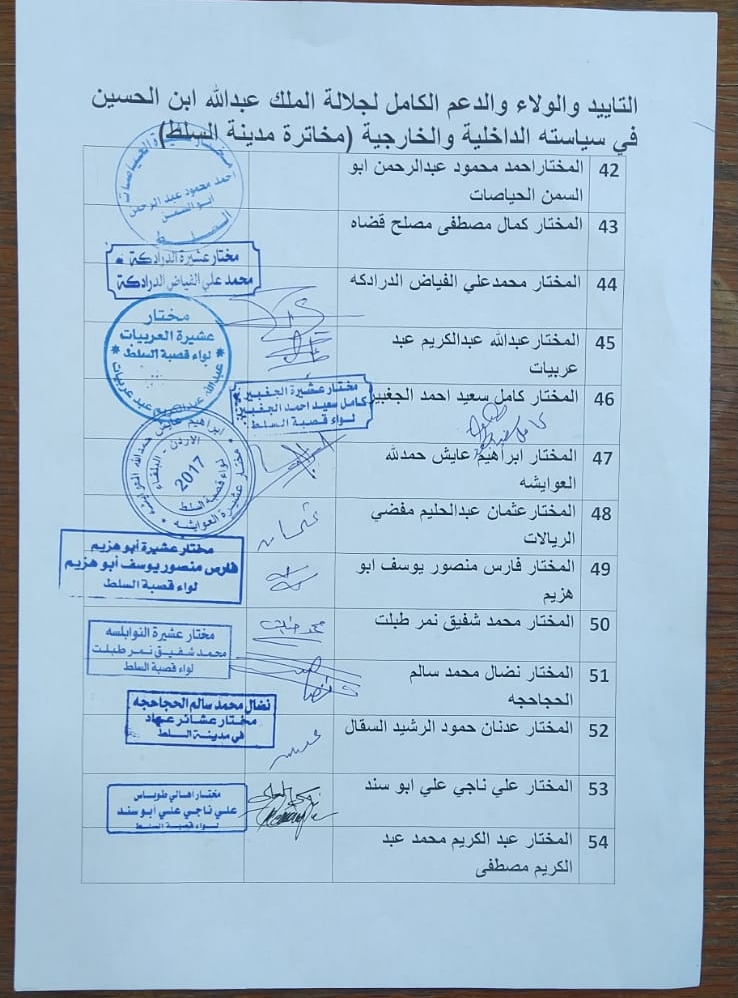 التاييد والولاء والدعم الكامل لجلالة الملك عبدالله ابن الحسين
في سياسته الداخلية والخارجية (مخاترة مدينة السلط)
42 المختاراحمد محمود عبدالرحمن ابو
السمن الحياصات
احمد محمود عبد الرحمن
ابو السمن
السلط
43 المختار كمال مصطفى مصلح قضاه
مختار عشيرة الدرادكة
محمد علي الفياض الدرادكة
44 المختار محمدعلي الفياض الدرادكه
45 المختارعبدالله عبدالكريم عبد
عربيات
مختار
عشيرة العربيات
لواء قصبة السلط
عبدالله عبدالكريم عبد عربيات
46 المختار كامل سعيد احمد الجغبير
مختار عشيرة الجغبير
كامل سعيد احمد الجغبير
لواء قصبة السلط
47 المختار ابراهيم عايش حمدلله
العوايشه
ابراهيم عايش حمدالله العوايشه
الأردن - البلقاء
2017
لواء قصبة السلط
مختار عشيرة العوايشه
48 المختارعثمان عبدالحليم مفضي
الريالات
عثمان
49 المختار فارس منصور يوسف ابو
هزيم
مختار عشيرة أبو هزيم
فارس منصور يوسف أبو هزيم
لواء قصبة السلط
50 المختار محمد شفيق نمر طبلت
مختار عشيرة النوابلسه
محمد شفيق نمر طبلت
لواء قصبة السلط
51 المختار نضال محمد سالم
الحجاحجه
نضال محمد سالم الحجاحجه
مختار عشائر عباد
في مدينة السلط
52 المختار عدنان حمود الرشيد السقال
53 المختار علي ناجي علي ابو سند
مختار اهالي طوباس
علي ناجي علي ابو سند
لواء قصبة السلط
54 المختار عبد الكريم محمد عبد
الكريم مصطفى